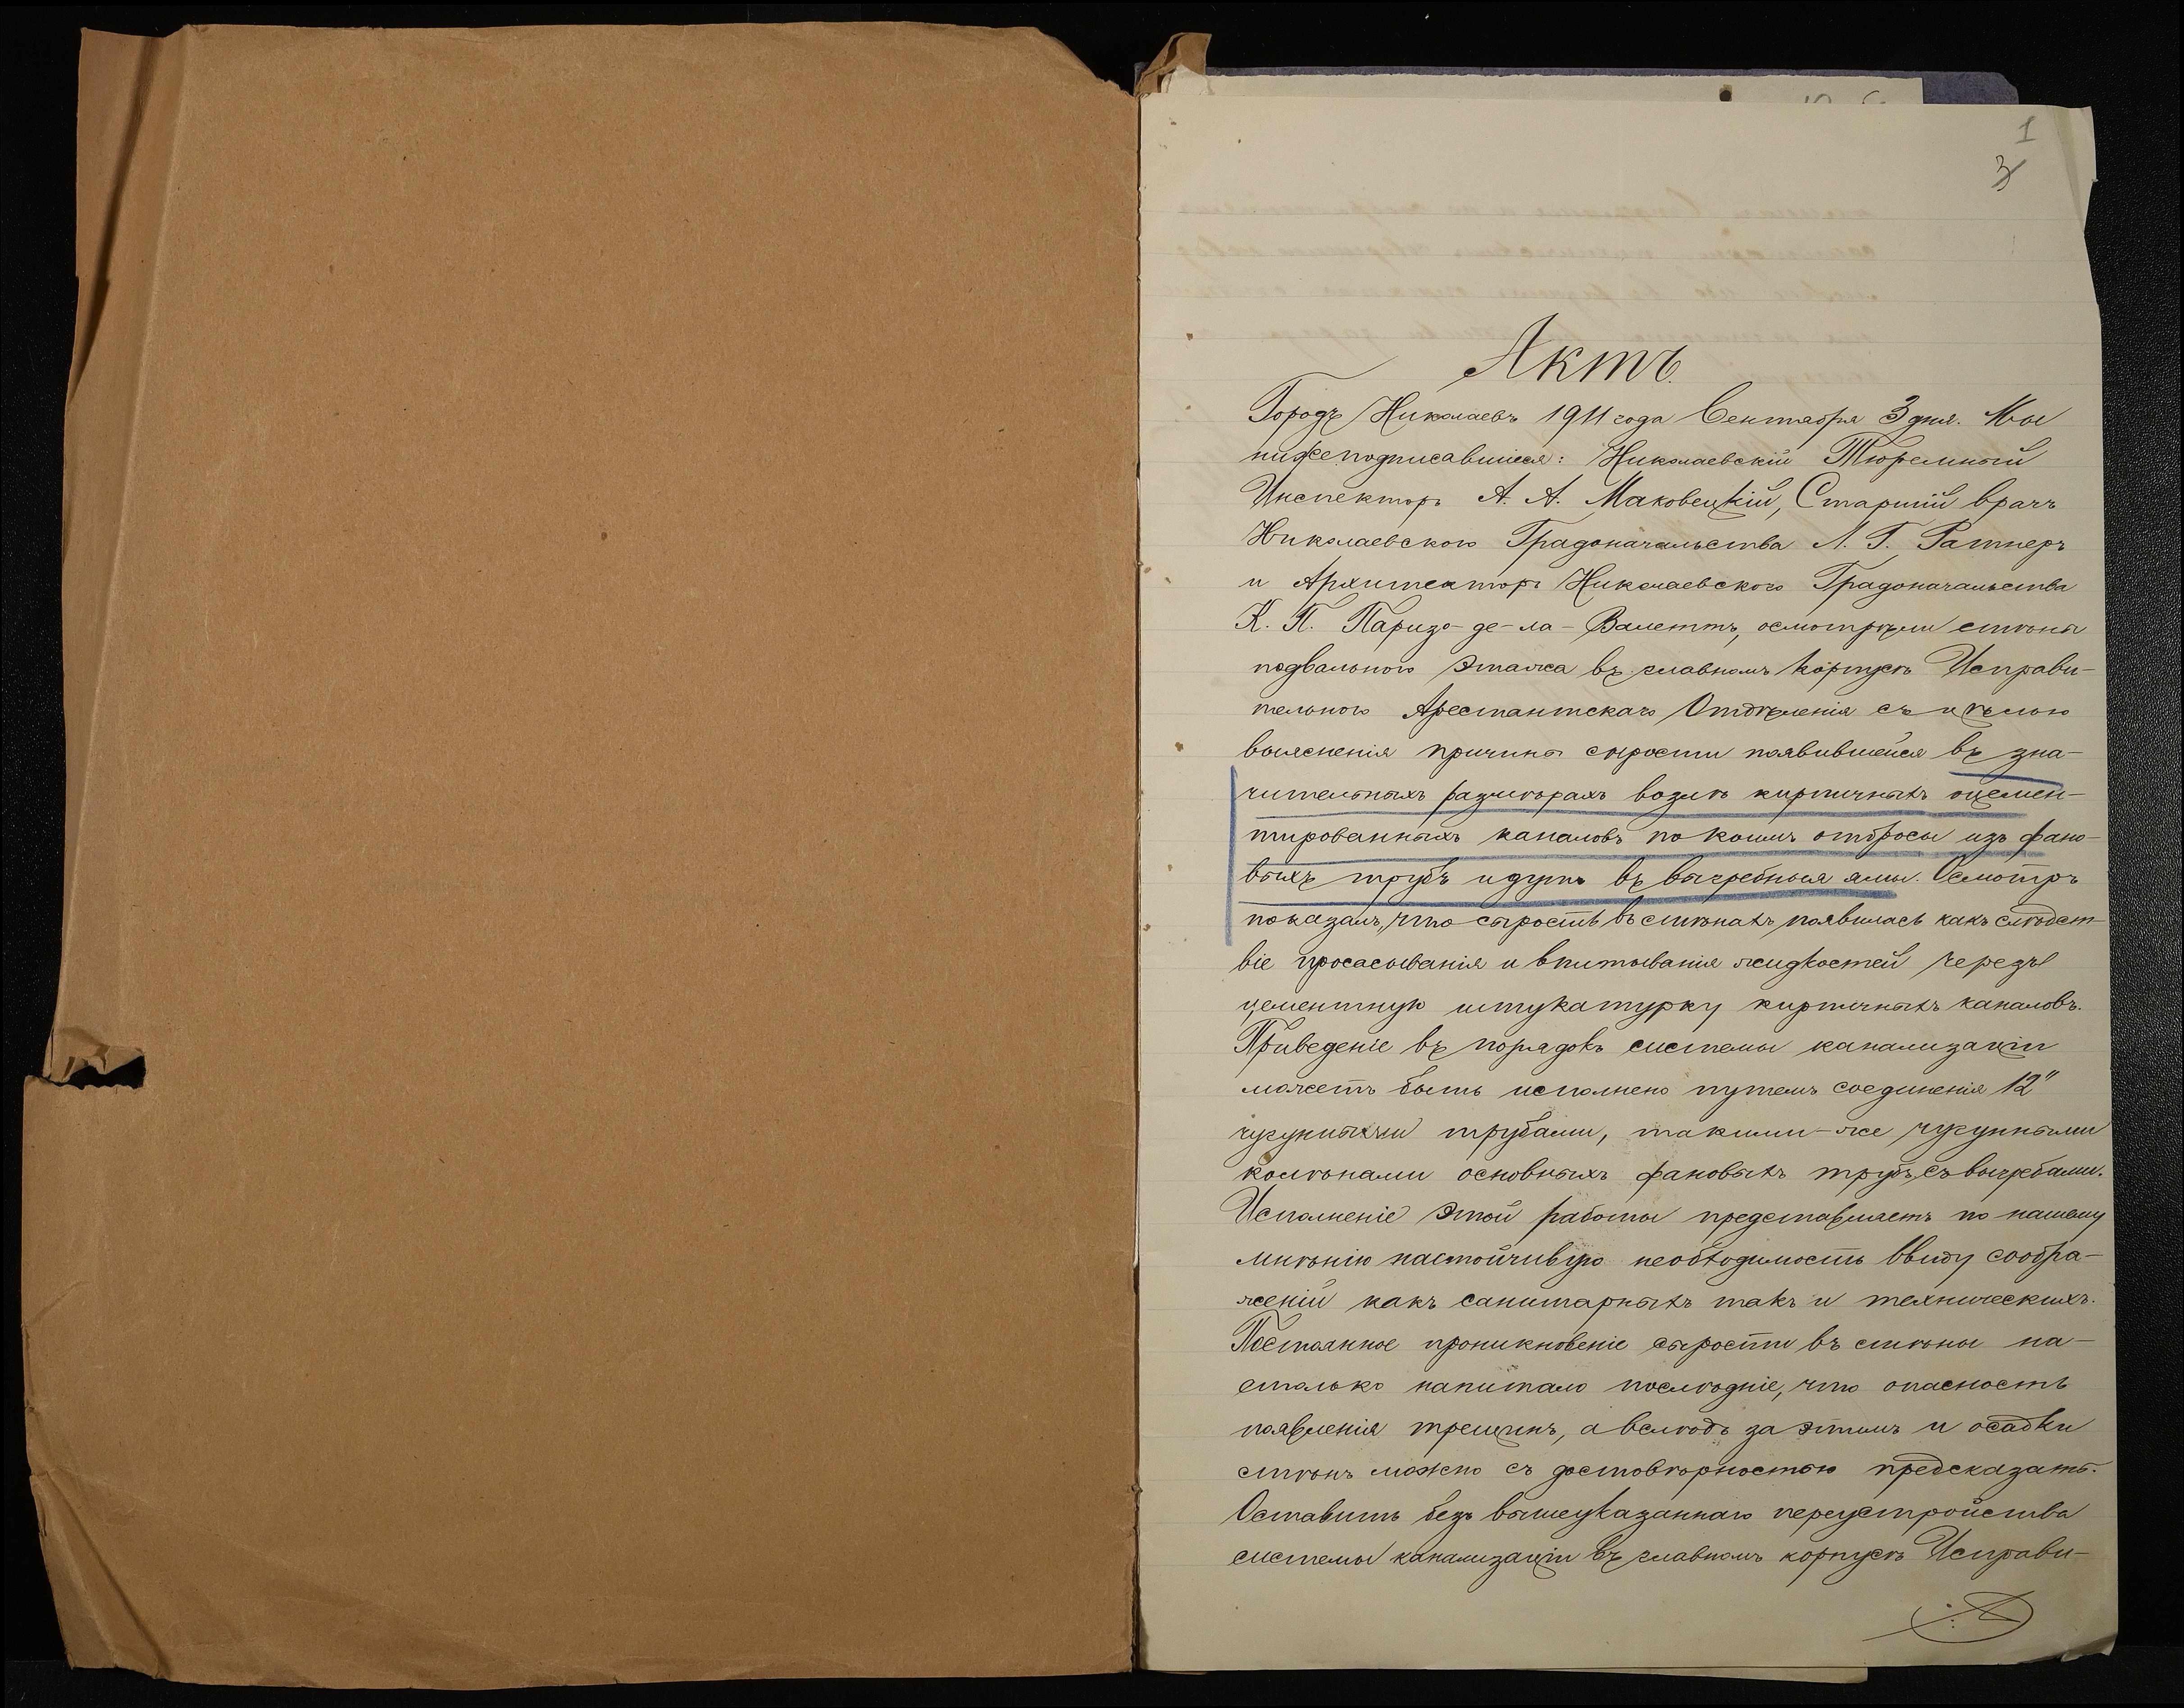 1
3
Актъ.
Городъ Николаевъ 1911 года Сентября 3 дня. Мы
нижеподписавшіеся: Николаевскій Тюремный
Инспекторъ А. А. Маковецкій, Старшій врачъ
Николаевского Градоначальства Л. Г. Ратнеръ
и Архитекторъ Николаевского Градоначальства
К. П. Паризо-де-ла-Валеттъ, осмотрѣли стѣны
подвального этажа въ главномъ корпусѣ Исправи-
тельного Арестантскаго Отдѣленія съ цѣлью
выясненія причины сырости появившейся въ зна-
чительныхъ размѣрахъ возлѣ кирпичныхъ оцемен-
тированныхъ каналовъ по коимъ отбросы изъ фано-
выхъ трубъ идутъ въ выгребныя ямы. Осмотръ
показалъ, что сырость въ стѣнахъ появилась какъ слѣдст-
віе просасыванія и впитыванія жидкостей черезъ
цементную штукатурку кирпичныхъ каналовъ.
Приведеніе въ порядокъ системы канализаціи
можетъ быть исполнено путемъ соединенія 12"
чугунными трубами, такими-же чугунными
колѣнами основныхъ фановыхъ трубъ съ выгребами.
Исполненіе этой работы представляетъ по нашему
мнѣнію настойчивую необходимость ввиду сообра-
женій какъ санитарныхъ такъ и техническихъ.
Постоянное проникновеніе сырости въ стѣны на-
столько напитало послѣдніе, что опасность
появленія трещинъ, а вслѣдъ за этимъ и осадки
стѣнъ можно съ достовѣрностью предсказать.
Оставить безъ вышеуказаннаго переустройства
системы канализаціи въ главномъ корпусѣ Исправи-